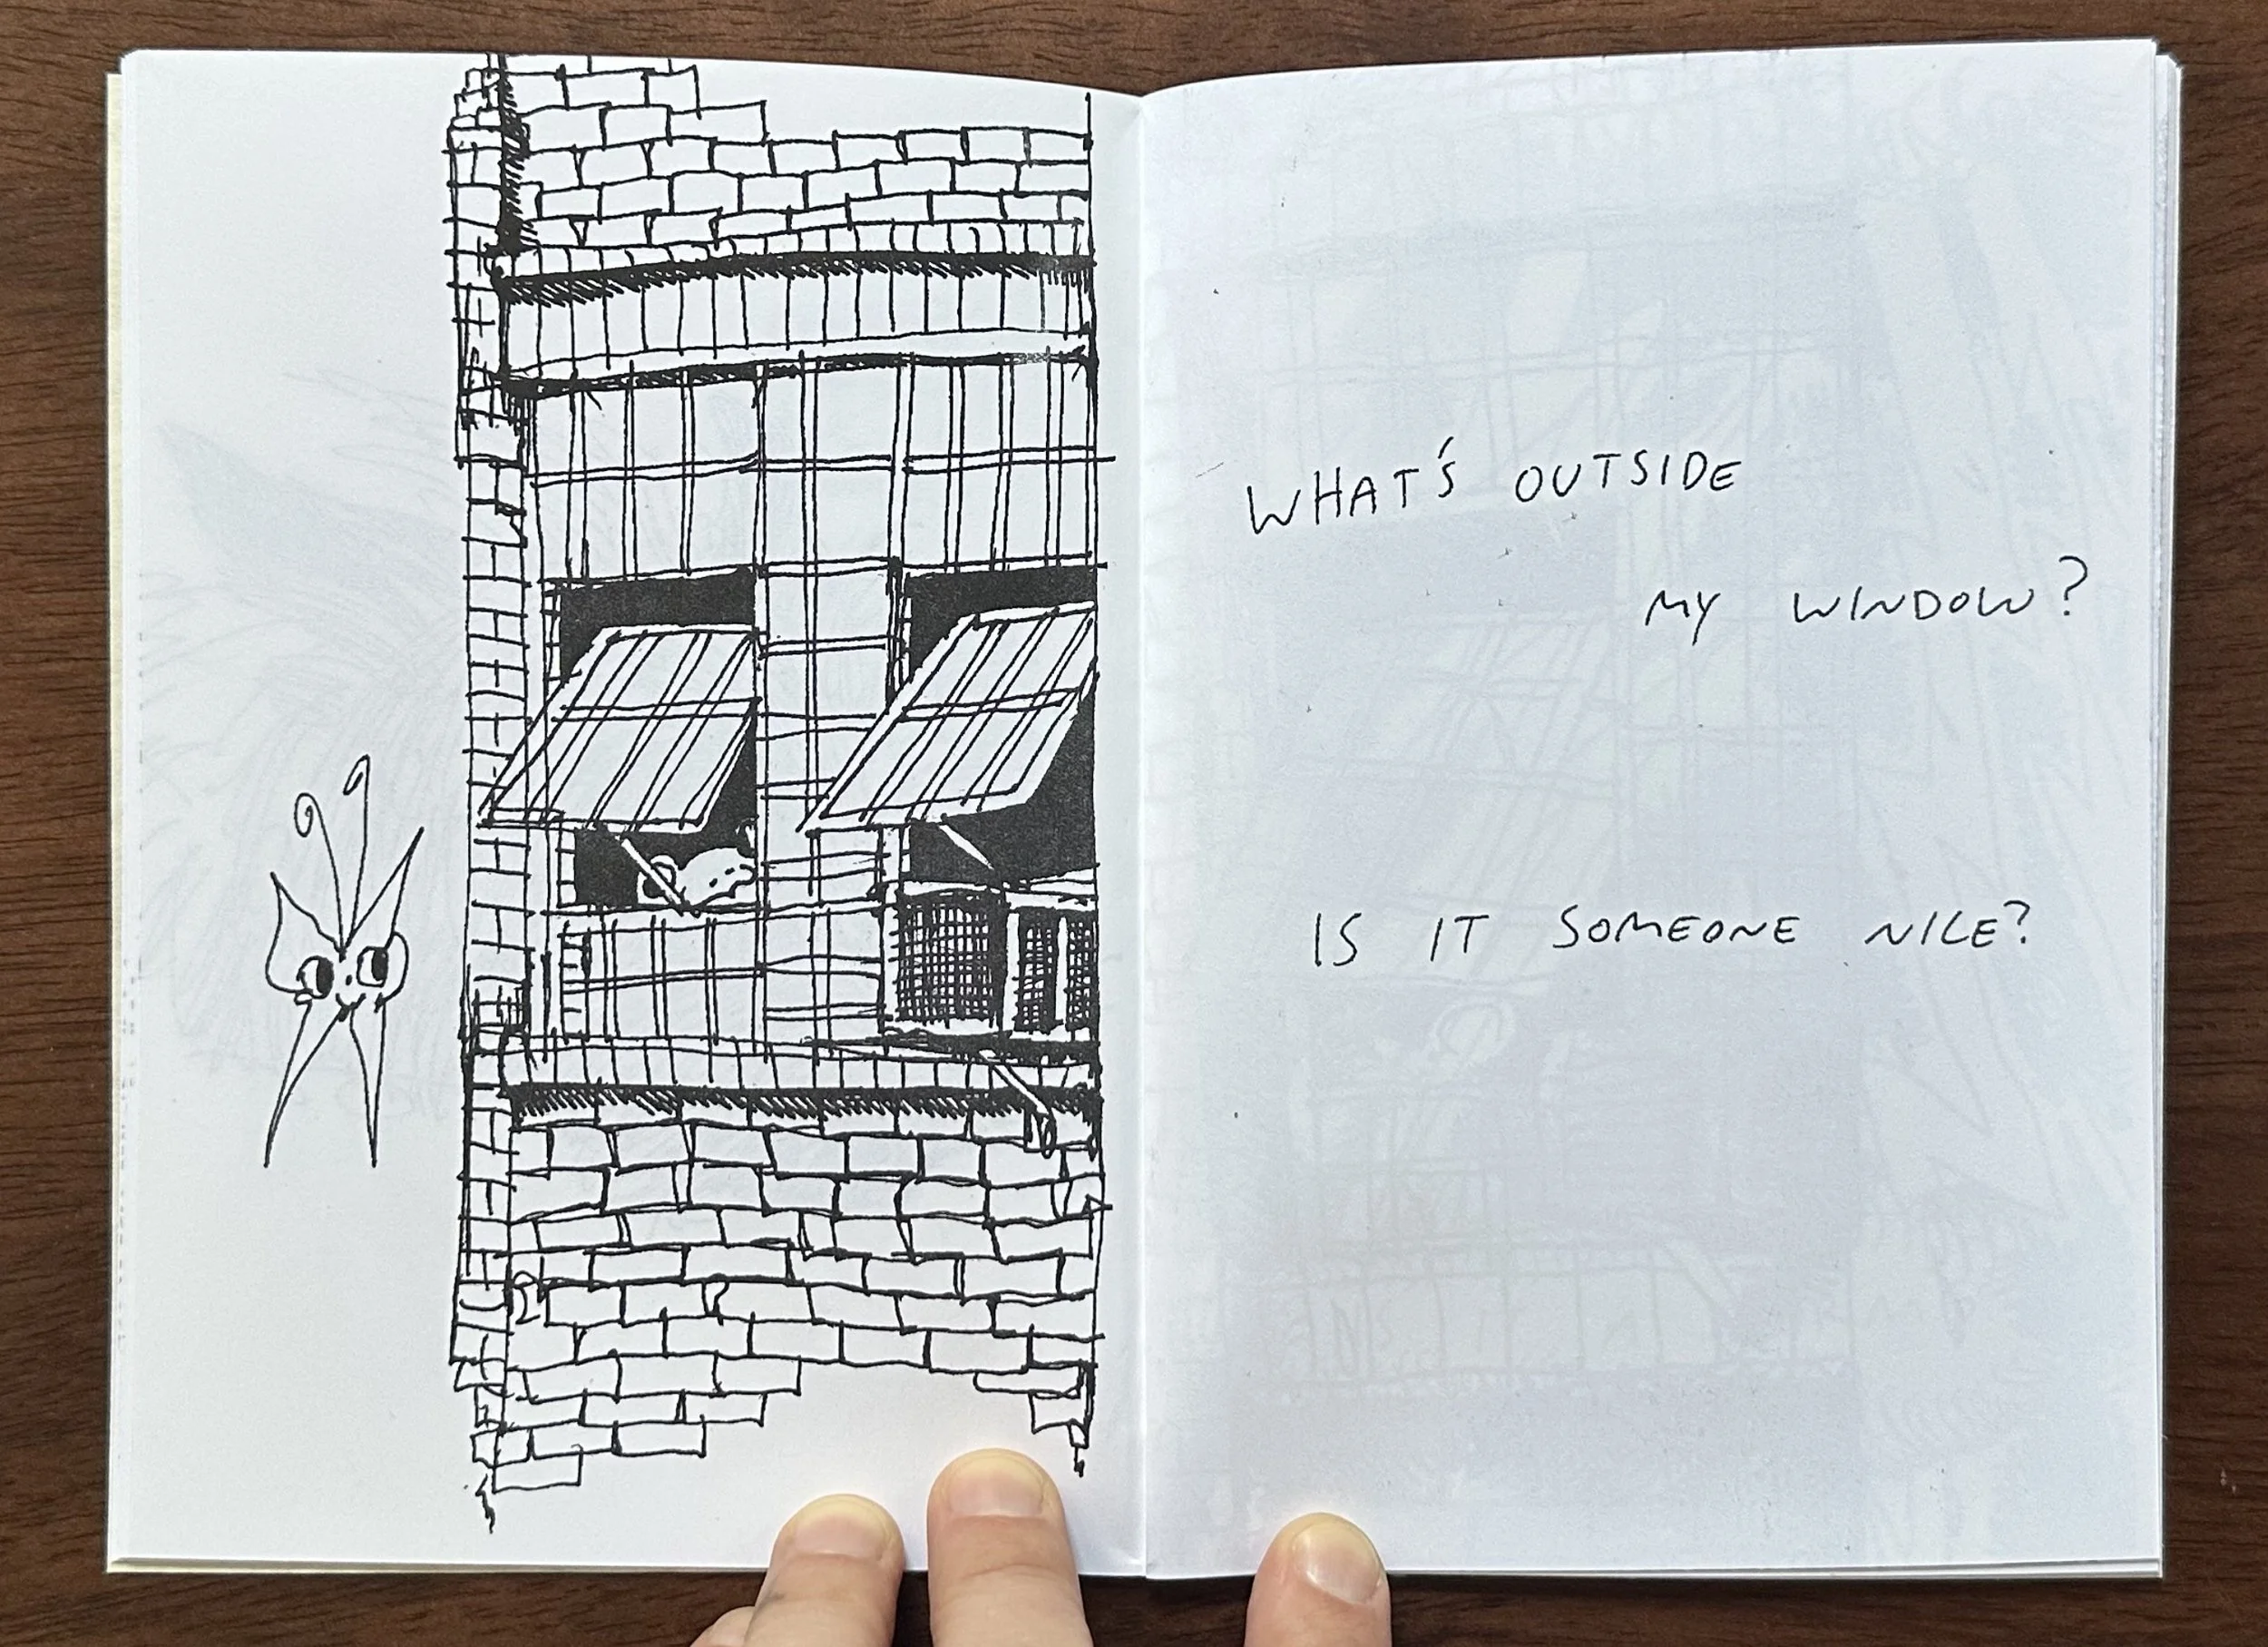 WHAT'S OUTSIDE
MY WINDOW?
IS IT SOMEONE NICE?